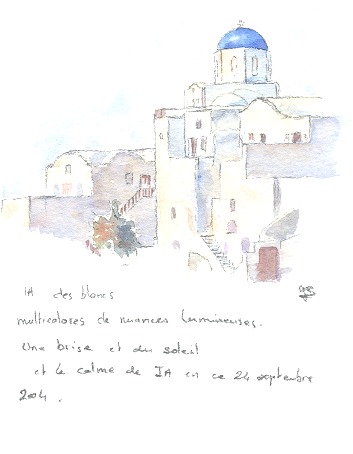 IA des blancs
multicolores de nuances lumineuses.
Une brise et du soleil
et le calme de IA en ce 24 septembre
2004.